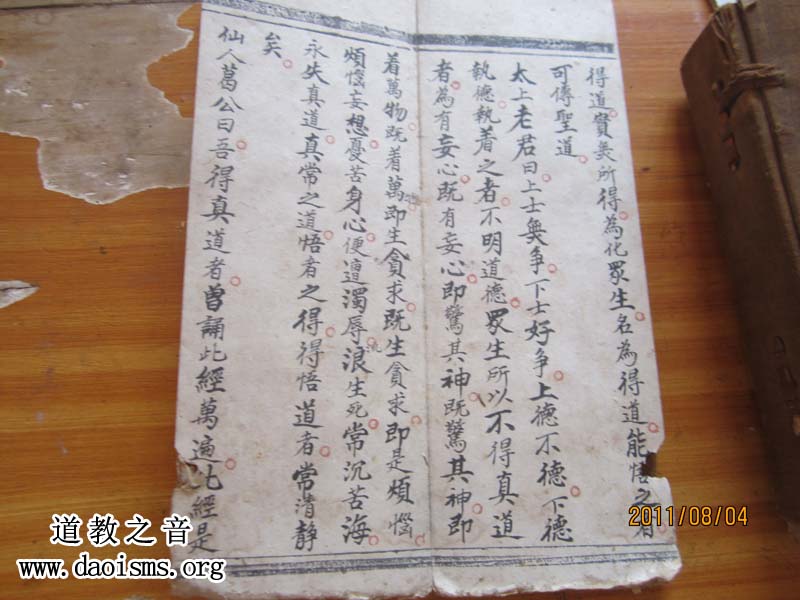 得道實無所得為化眾生名為得道能悟之者
可傳聖道
太上老君曰上士無爭下士好爭上德不德下德
執德執着之者不明道德眾生所以不得真道
者為有妄心既有妄心即驚其神既驚其神即
着萬物既着萬物即生貪求既生貪求即是煩惱
煩惱妄想憂苦身心便遭濁辱流浪生死常沉苦海
永失真道真常之道悟者之得得悟道者常清靜
矣
仙人葛公曰吾得真道者曾誦此經萬遍此經是
2011/08/04
道教之音
www.daoisms.org